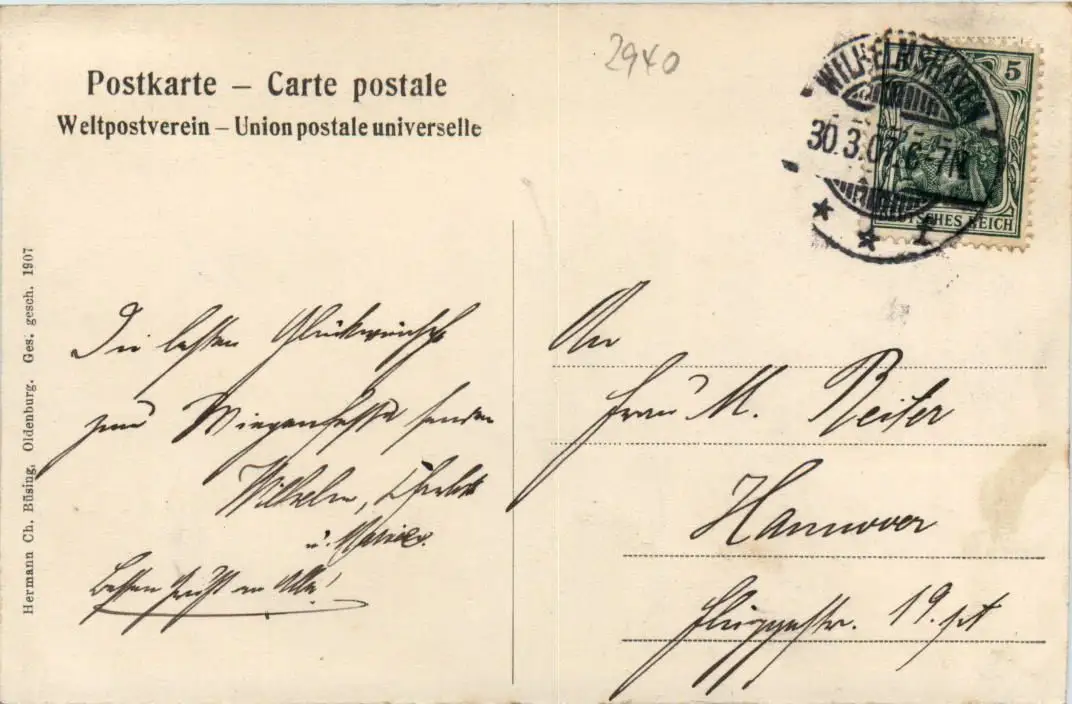 2940
Postkarte – Carte postale
Weltpostverein – Union postale universelle
WILHELMSHAVEN
30.3.07.6-7N
* * 1
5
DEUTSCHES REICH
Hermann Ch. Büsing, Oldenburg. Ges. gesch. 1907
Die besten Glückwünsche
zum Wiegenfeste senden
Wilhelm,
u.
Besten Gruß an Alle!
An
Frau M. Reiter
Hannover
Flüggestr. 19.